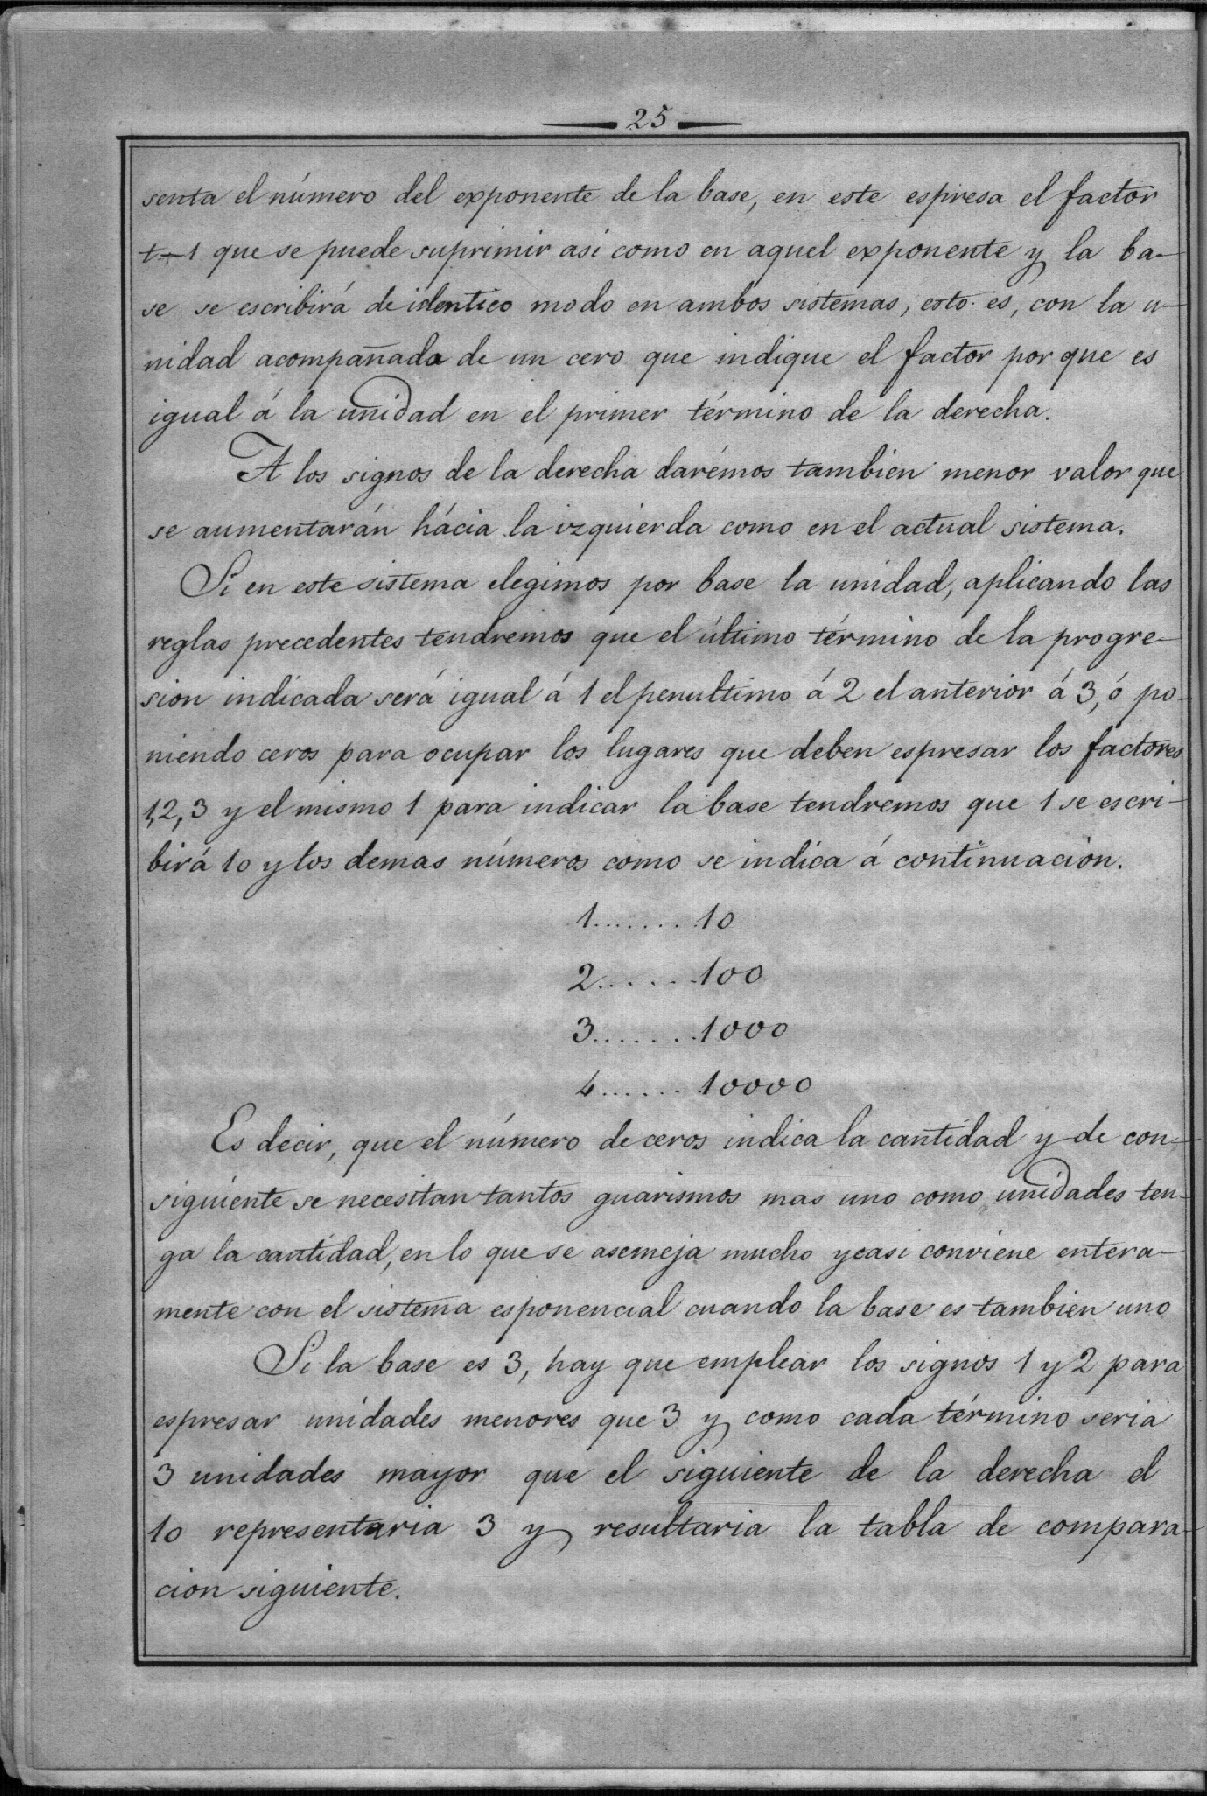 25
senta el número del exponente de la base, en este espresa el factor
t-1 que se puede suprimir asi como en aquel exponente y la ba-
se se escribirá de identico modo en ambos sistemas, esto es, con la u-
nidad acompañada de un cero que indique el factor por que es
igual á la unidad en el primer término de la derecha.
A los signos de la derecha darémos tambien menor valor que
se aumentarán hácia la izquierda como en el actual sistema.
Si en este sistema elegimos por base la unidad, aplicando las
reglas precedentes tendremos que el último término de la progre-
sion indicada será igual á 1 el penultimo á 2 el anterior á 3, ó po-
niendo ceros para ocupar los lugares que deben espresar los factores
1,2,3 y el mismo 1 para indicar la base tendremos que 1 se escri-
birá 10 y los demas números como se indica á continuacion.
1.......10
2......100
3.......1000
4......10000
Es decir, que el número de ceros indica la cantidad y de con-
siguiente se necesitan tantos guarismos mas uno como unidades ten-
ga la cantidad, en lo que se asemeja mucho y casi conviene entera-
mente con el sistema esponencial cuando la base es tambien uno
Si la base es 3, hay que emplear los signos 1 y 2 para
espresar unidades menores que 3 y como cada término seria
3 unidades mayor que el siguiente de la derecha el
10 representaria 3 y resultaria la tabla de compara-
cion siguiente.